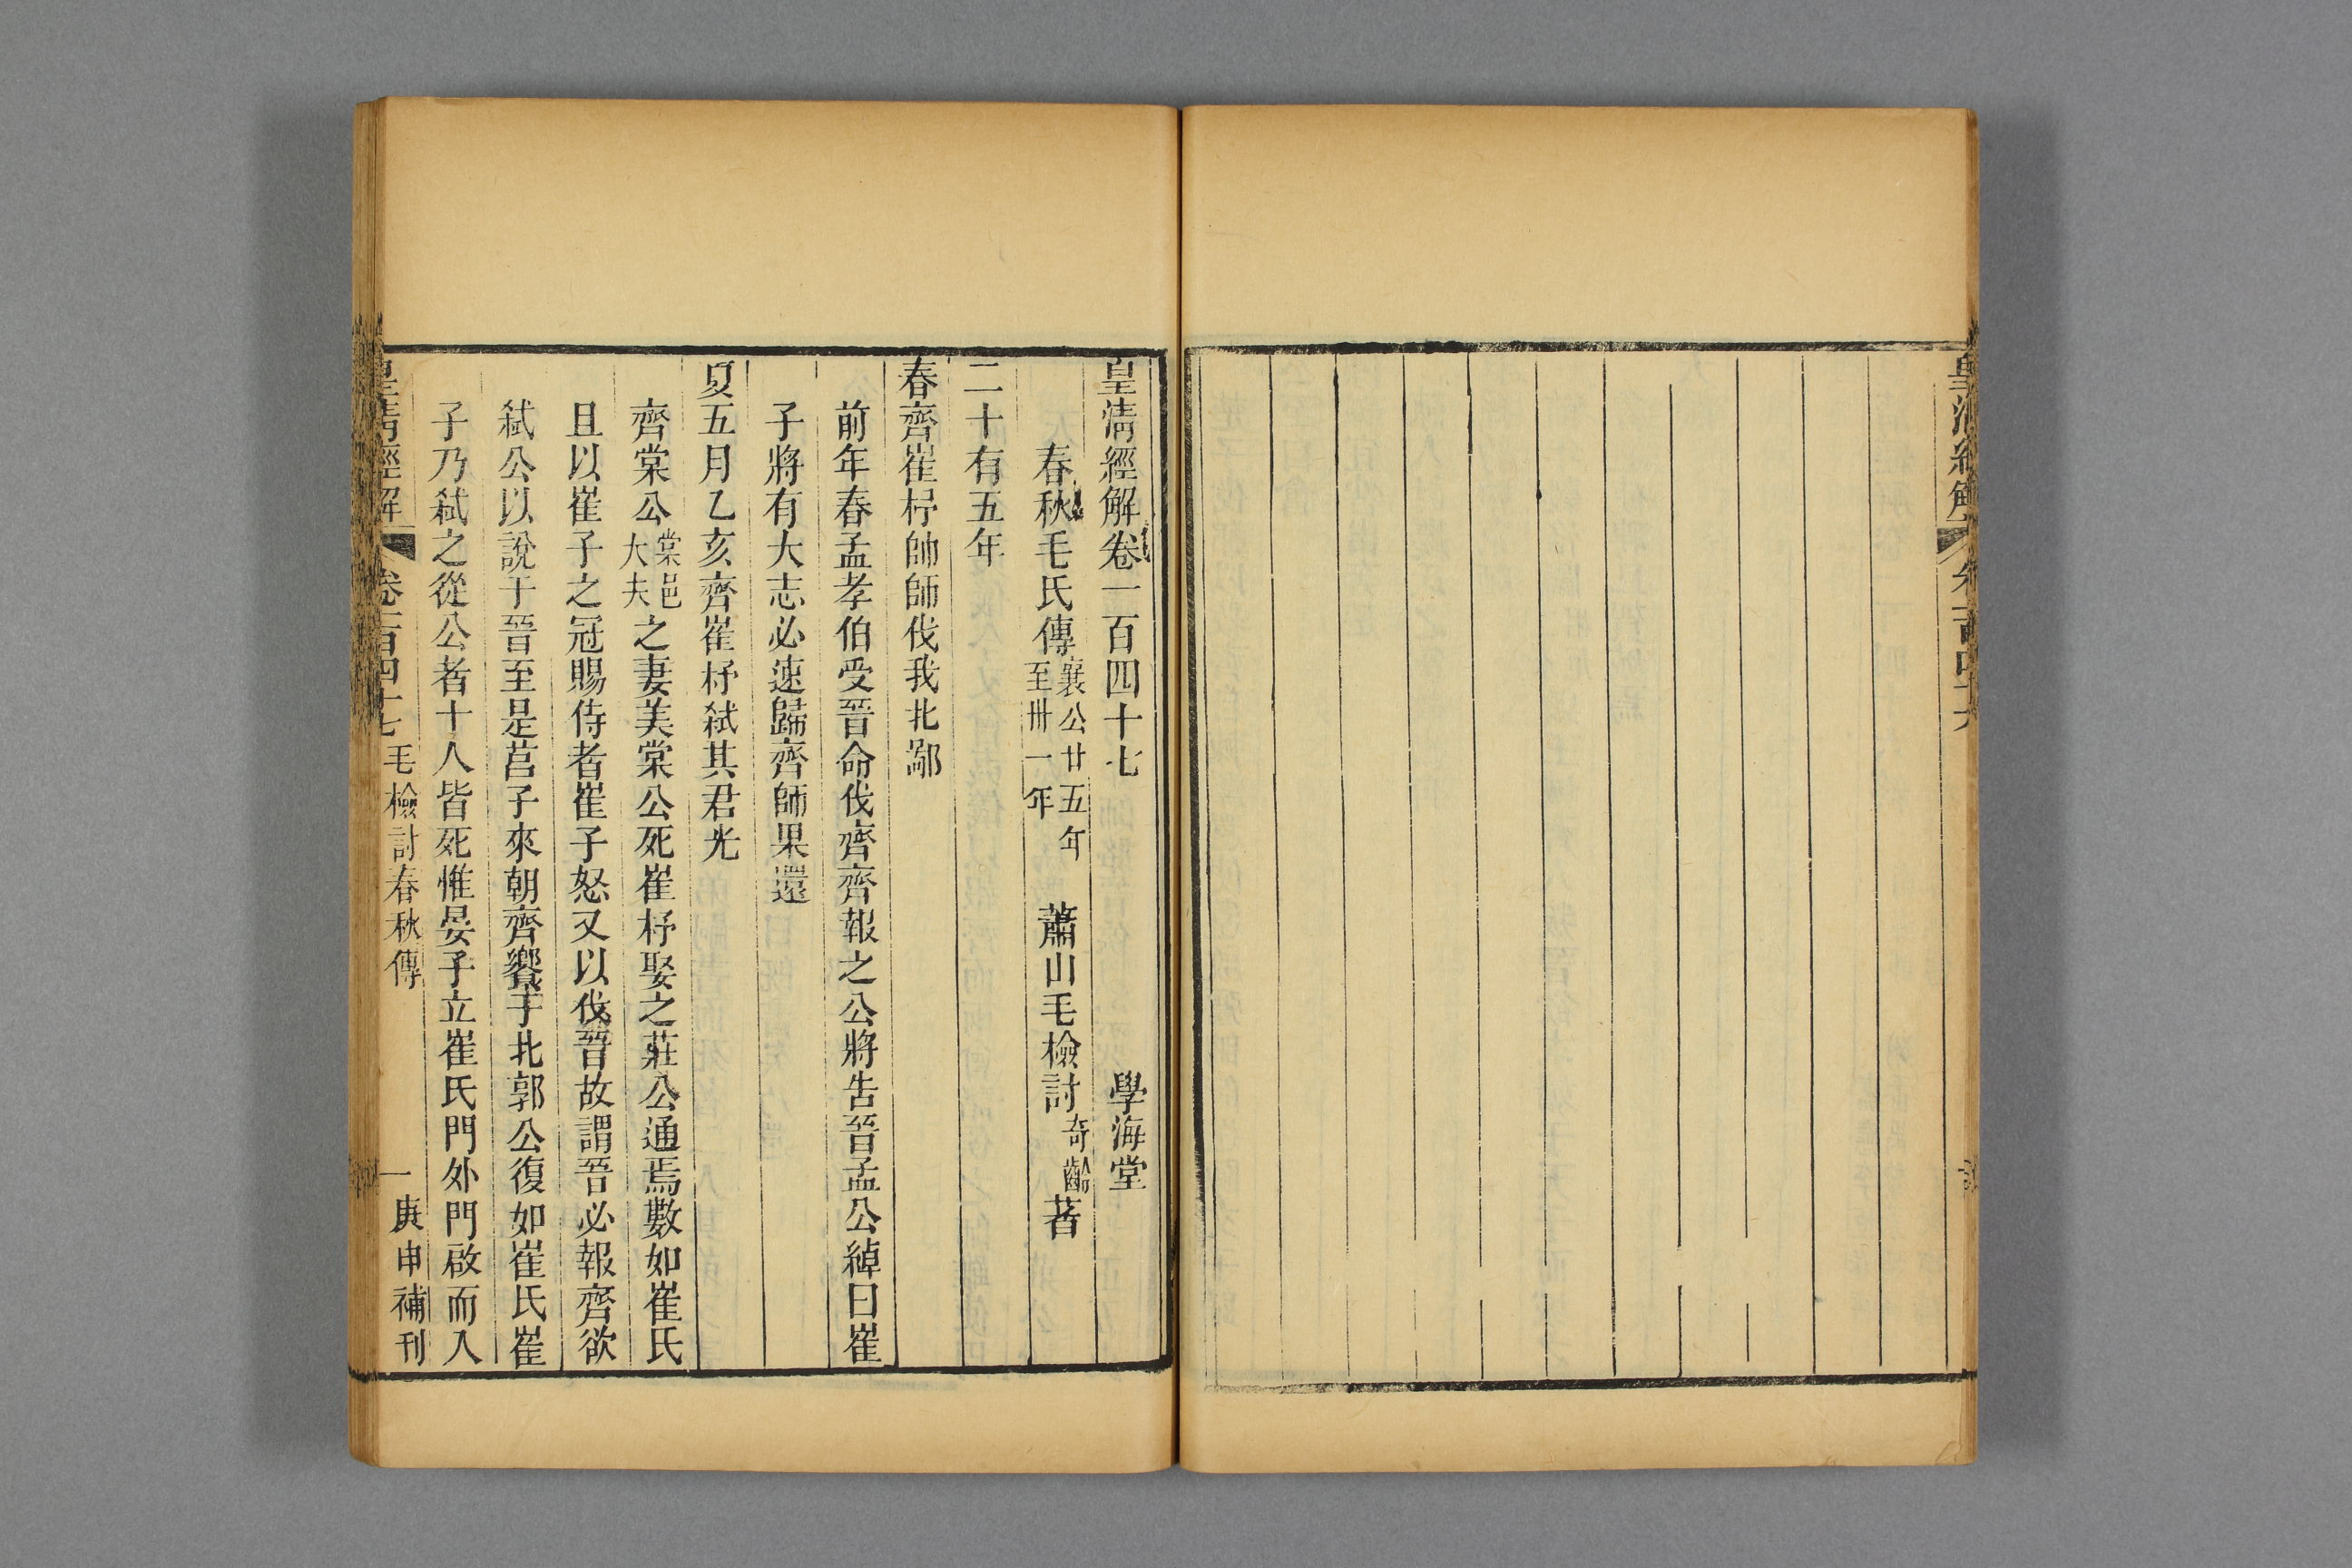 皇清經解卷一百四十七 學海堂
春秋毛氏傳襄公廿五年至卅一年 蕭山毛檢討奇齡著
二十有五年
春齊崔杼帥師伐我北鄙
前年春孟孝伯受晉命伐齊齊報之公將告晉孟公綽曰崔
子將有大志必速歸齊師果還
夏五月乙亥齊崔杼弒其君光
齊棠公棠邑大夫之妻美棠公死崔杼娶之莊公通焉數如崔氏
且以崔子之冠賜侍者崔子怒又以伐晉故謂晉必報齊欲
弒公以說于晉至是莒子來朝齊饗于北郭公復如崔氏崔
子乃弒之從公者十人皆死惟晏子立崔氏門外門啟而入
皇清經解 卷一百四十七 毛檢討春秋傳 一 庚申補刊
皇清經解